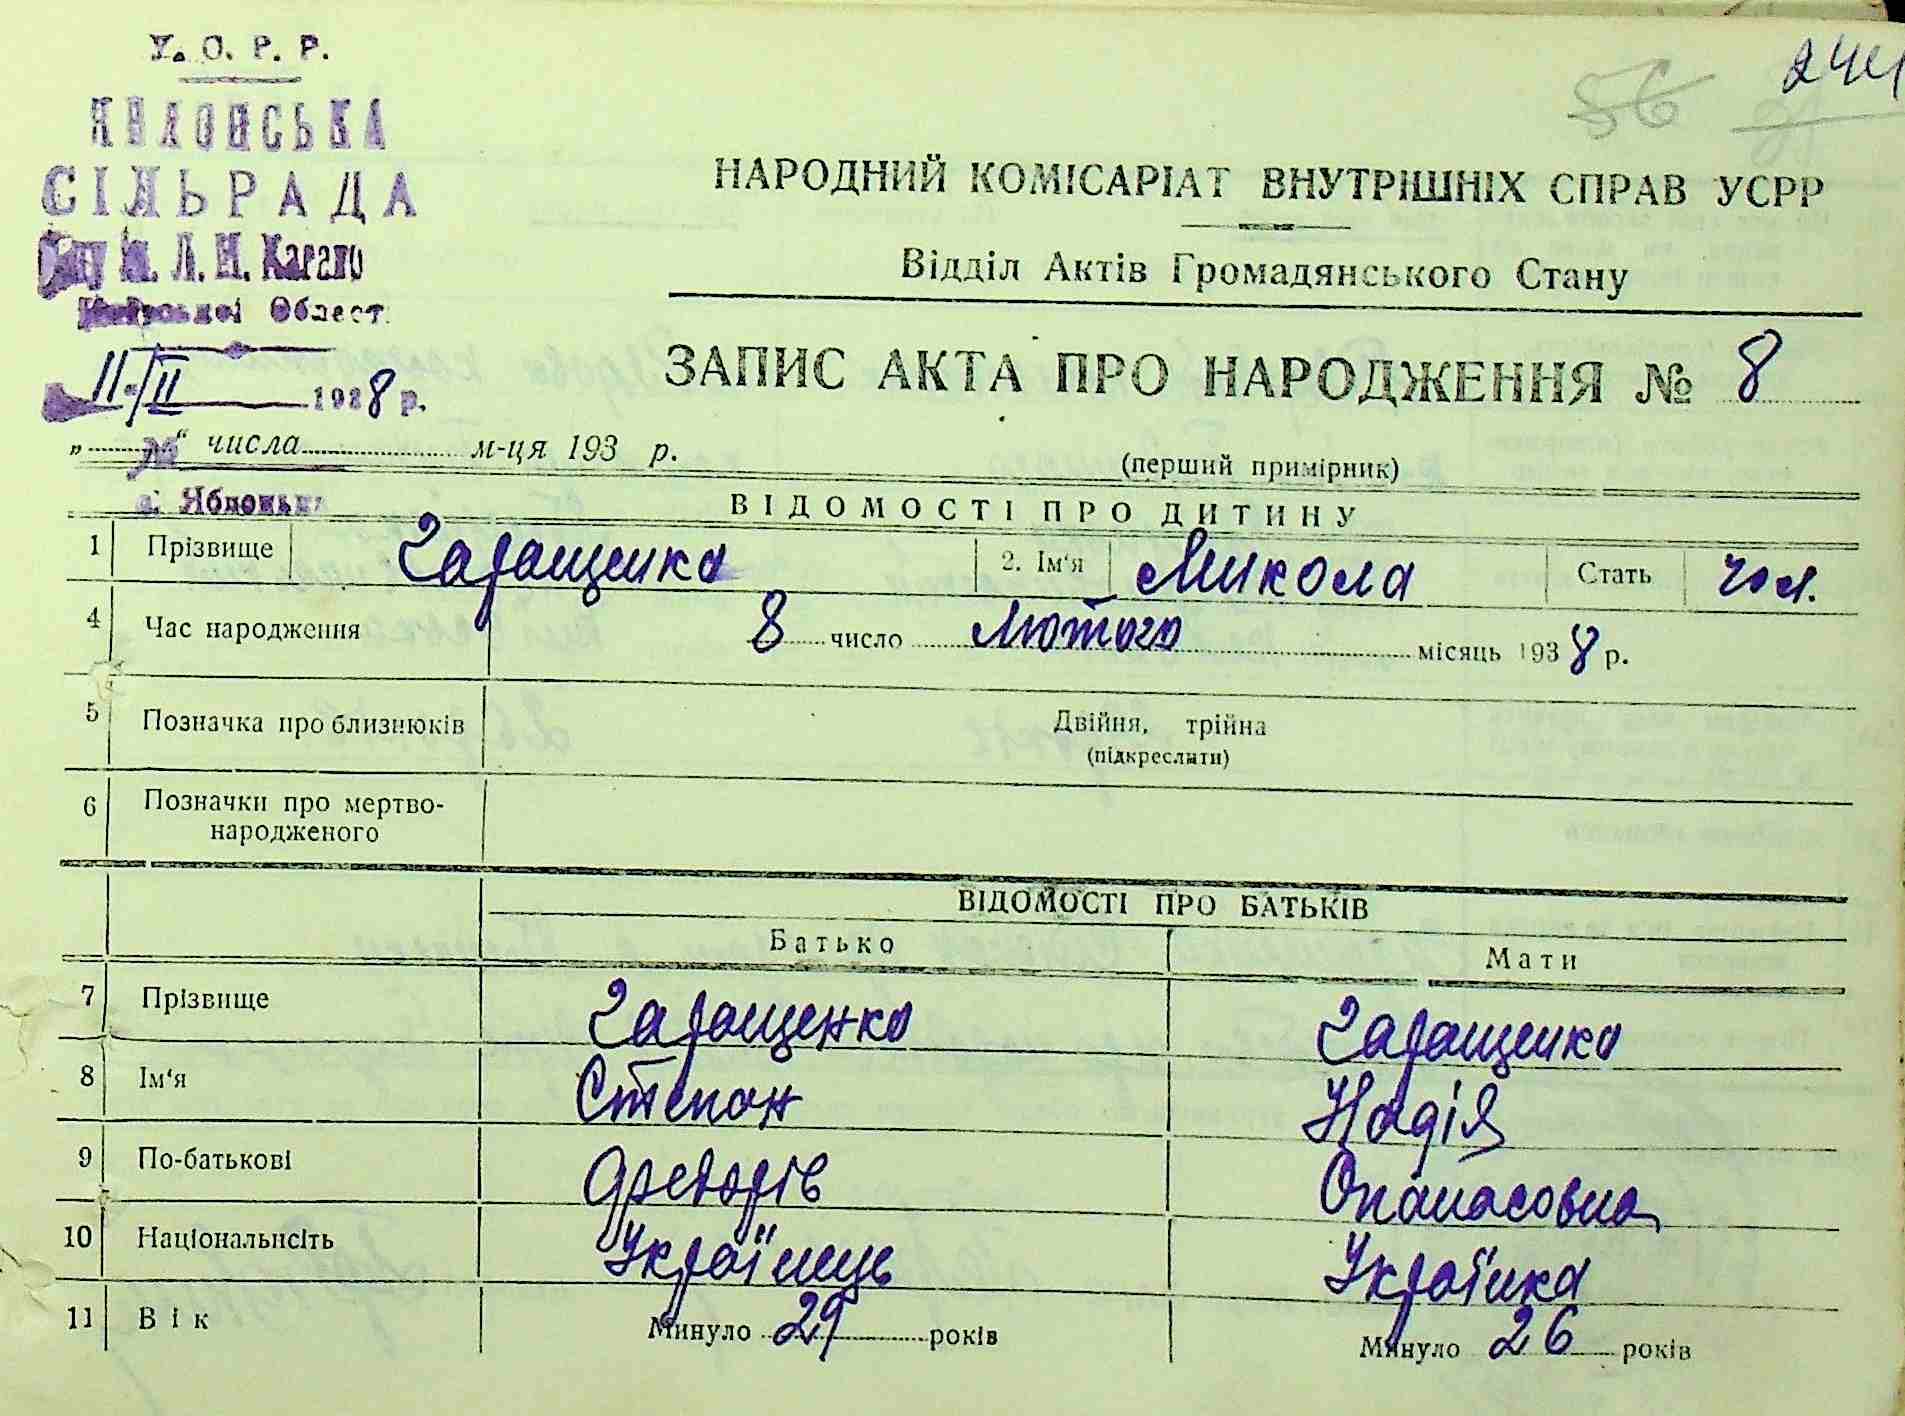 У. С. Р. Р.
СІЛЬРАДА
ім. Л. М. Кагано
Област.
11/II 1938 р.
56 244
НАРОДНИЙ КОМІСАРІАТ ВНУТРІШНІХ СПРАВ УСРР
Відділ Актів Громадянського Стану
ЗАПИС АКТА ПРО НАРОДЖЕННЯ № 8
„ “ числа м-ця 193 р.
(перший примірник)
с. Яблонька
ВІДОМОСТІ ПРО ДИТИНУ
1 Прізвище Гаращенко 2. Ім'я Микола Стать чол.
4 Час народження 8 число Лютого місяць 1938 р.
5 Позначка про близнюків Двійня, трійна
(підкреслити)
6 Позначки про мертво-
народженого
ВІДОМОСТІ ПРО БАТЬКІВ
Батько Мати
7 Прізвище Гаращенко Гаращенко
8 Ім'я Степан Надія
9 По-батькові Федорів Опанасовна
10 Національнсіть Українець Українка
11 Вік Минуло 29 років Минуло 26 років